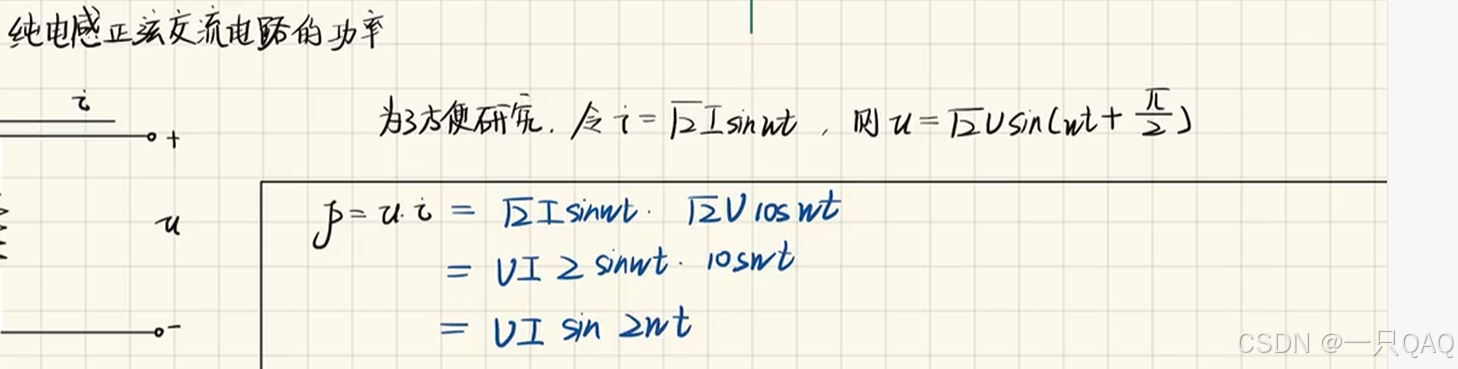 纯电感正弦交流电路的功率
i
为了方便研究. 令 i = √2 I sinωt , 则 u = √2 U sin(ωt + π/2)
+
p = u·i = √2 I sinωt · √2 U cosωt
u
= UI 2 sinωt · cosωt
= UI sin 2ωt
-
CSDN @一只QAQ